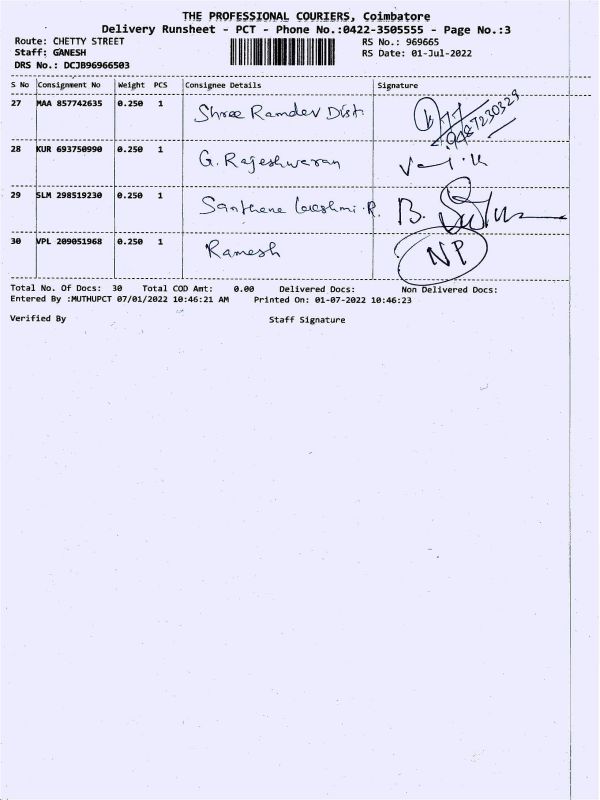 THE PROFESSIONAL COURIERS, Coimbatore
Delivery Runsheet - PCT - Phone No.:0422-3505555 - Page No.:3
Route: CHETTY STREET RS No.: 969665
Staff: GANESH RS Date: 01-Jul-2022
DRS No.: DCJB96966503
S No Consignment No Weight PCS Consignee Details Signature
27 MAA 857742635 0.250 1 Shree Ramdev Dist.
28 KUR 693750990 0.250 1 G. Rajeshwaran
29 SLM 298519230 0.250 1 Santhana Lakshmi.R. B.
30 VPL 209051968 0.250 1 Ramesh NP
Total No. Of Docs: 30 Total COD Amt: 0.00 Delivered Docs: Non Delivered Docs:
Entered By :MUTHUPCT 07/01/2022 10:46:21 AM Printed On: 01-07-2022 10:46:23
Verified By Staff Signature